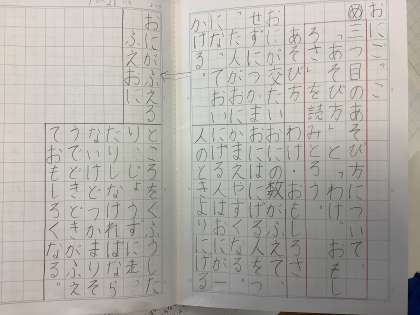 おにごっこ
め三つ目のあそび方について、
「あそび方」と「わけ・おもし
ろさ」を読みとろう。
あそび方
わけ・おもしろさ
おにが交たい
せずに、つかま
った人がおに
になっておい
かける。
おにの数がふえて、
おにはにげる人をつ
かまえやすくなる。
おにが一
人のときよりにげる
おにがふえる
ふえおに
ところをくふうした
り、じょうずに走っ
たりしなければなら
つかまりそ
うでどきどきがふえ
ておもしろくなる。